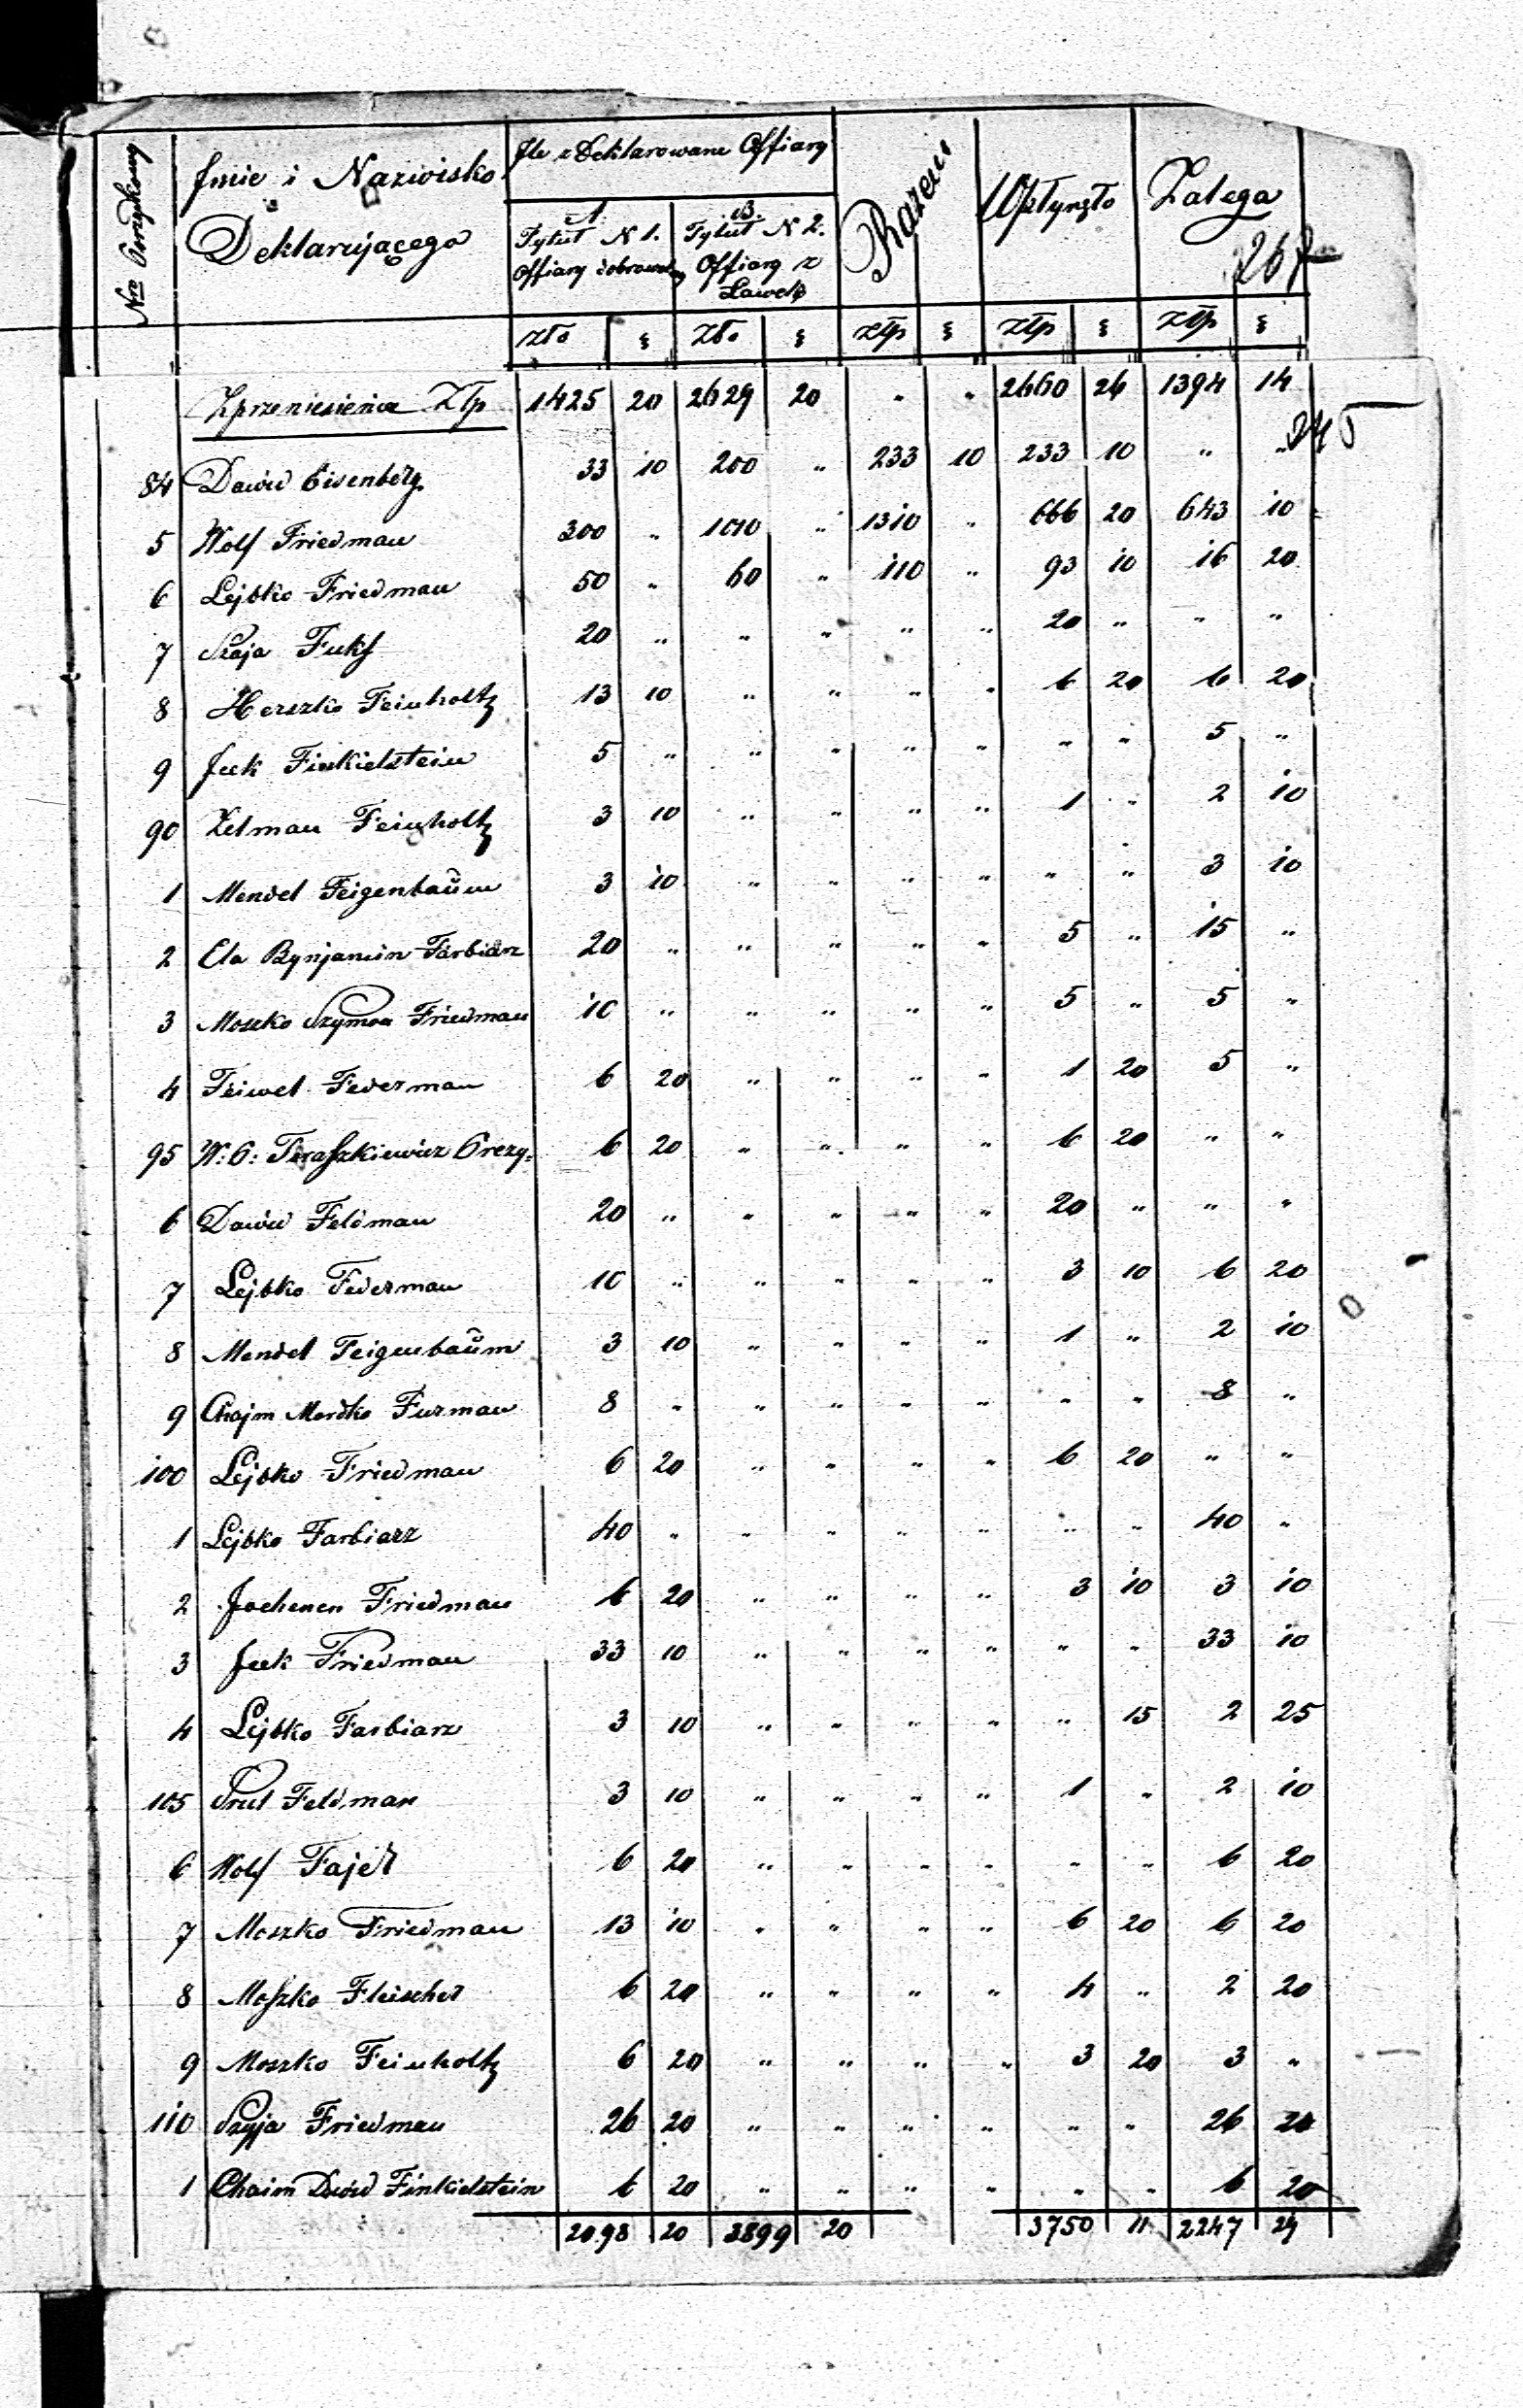 Nro Porządkowy
Imie i Nazwisko Deklarującego
Ile z Deklarowane Offiary
A. Tytuł N 1. Offiary dobrowolny
B. Tytuł N 2. Offiary z Ławek
Razem
Wpłynęło
Zalega
267
złо gr złо gr złp gr złp gr złp gr
Z przeniesienia Złp 1425 20 2629 20 " " 2660 26 1394 14
84 Dawid Eisenberg 33 10 200 " 233 10 233 10 " "
5 Wolf Friedman 300 " 1010 " 1310 " 666 20 643 10
6 Lejbko Friedman 50 " 60 " 110 " 93 10 16 20
7 Szaja Fuks 20 " " " " " 20 " " "
8 Herszko Feinholtz 13 10 " " " " 6 20 6 20
9 Icek Finkielstein 5 " " " " " " " 5 "
90 Zelman Feinholtz 3 10 " " " " 1 " 2 10
1 Mendel Feigenbaŭm 3 10 " " " " " " 3 10
2 Ela Bynjamin Farbiarz 20 " " " " " 5 " 15 "
3 Moszko Szymon Friedman 10 " " " " " 5 " 5 "
4 Feiwel Federman 6 20 " " " " 1 20 5 "
95 W: 6: Feraszkiewicz Prezy: 6 20 " " " " 6 20 " "
6 Dawid Feldman 20 " " " " " 20 " " "
7 Lejbko Federman 10 " " " " " 3 10 6 20
8 Mendel Feigenbaŭm 3 10 " " " " 1 " 2 10
9 Chajm Mordko Furman 8 " " " " " " " 8 "
100 Lejbko Friedman 6 20 " " " " 6 20 " "
1 Lejbko Farbiarz 40 " " " " " " " 40 "
2 Jochenen Friedman 6 20 " " " " 3 10 3 10
3 Icek Friedman 33 10 " " " " " " 33 10
4 Lejbko Farbiarz 3 10 " " " " " 15 2 25
105 Srul Feldman 3 10 " " " " 1 " 2 10
6 Wolf Fajer 6 20 " " " " " " 6 20
7 Moszko Friedman 13 10 " " " " 6 20 6 20
8 Moszko Fleischer 6 20 " " " " 4 " 2 20
9 Moszko Feinholtz 6 20 " " " " 3 20 3 "
110 Szyja Friedman 26 20 " " " " " " 26 20
1 Chaim Dawid Finkielstein 6 20 " " " " " " 6 20
2098 20 3899 20 3750 11 2247 29